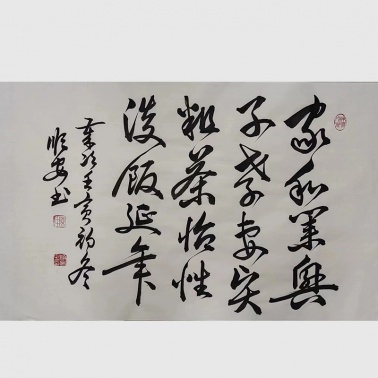 家和業興
子孝妻賢
粗茶怡性
淡飯延年
歲次壬寅初冬
順安书